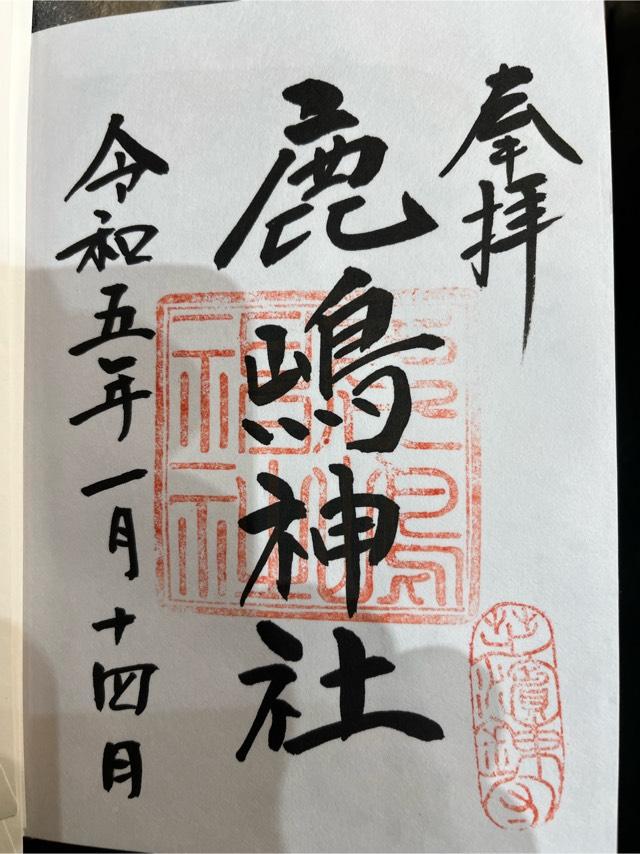 奉拝
鹿嶋神社
令和五年一月十四日